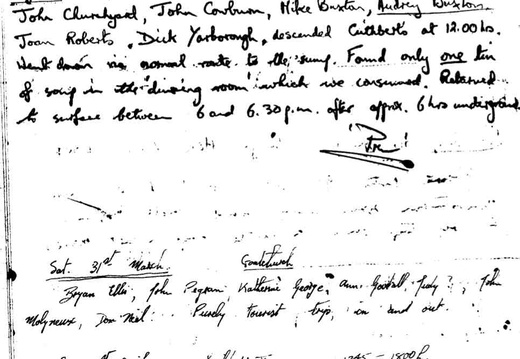 John Churchyard, John Cowburn, Mike Buxton, Audrey Buxton
Joan Roberts, Dick Yarborough, descended Cuthberts at 12.00 hrs.
Went down via normal route to the sump. Found only one tin
of soup in the "dining room" which we consumed. Returned
to surface between 6 and 6.30 p.m. after approx. 6 hrs underground
Sat. 31st March. Goatchurch
Bryan Ellis, John Pegram, Katherine George, Ann Goodall, Judy ?, John
Molyneux, Don Neil. Purely tourist trip, in and out.